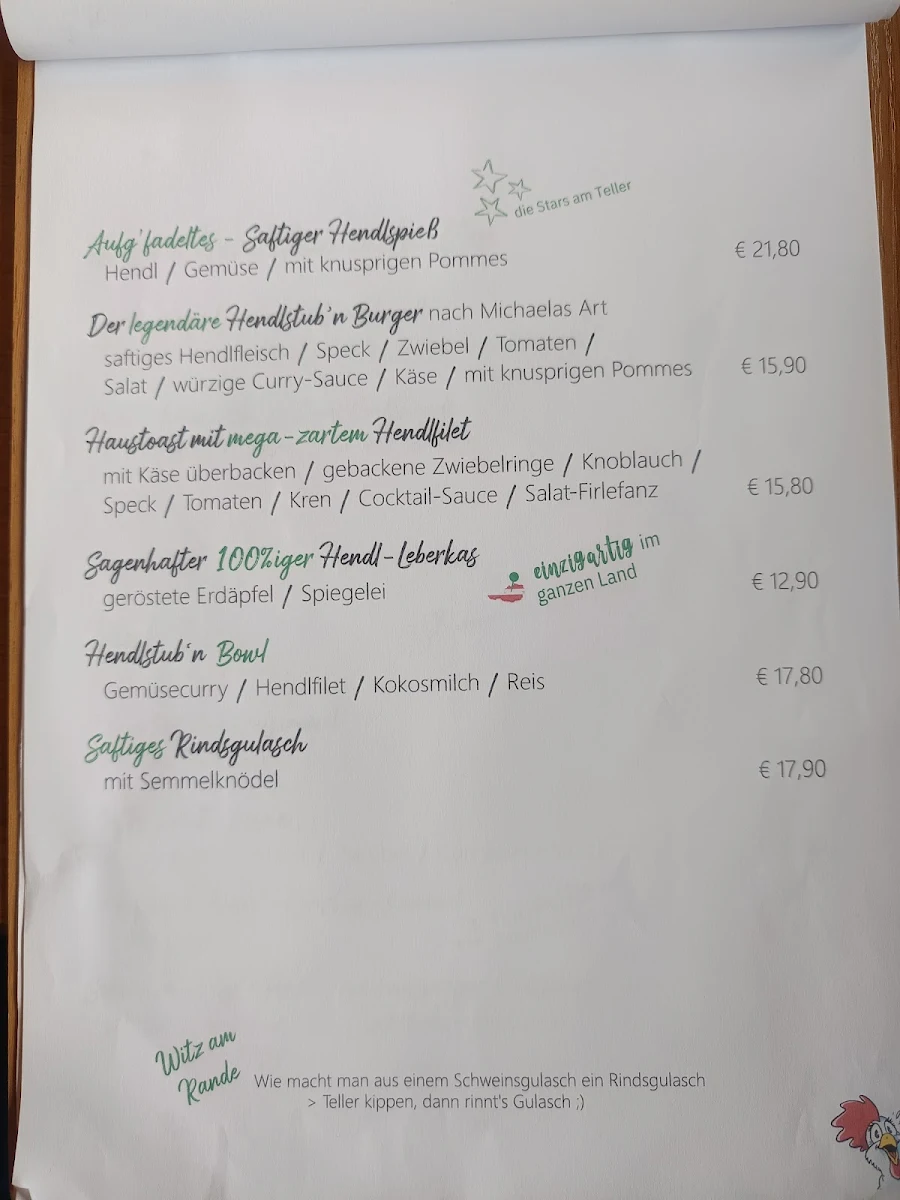 die Stars am Teller
Aufg'fadeltes - Saftiger Hendlspieß
Hendl / Gemüse / mit knusprigen Pommes
€ 21,80
Der legendäre Hendlstub'n Burger nach Michaelas Art
saftiges Hendlfleisch / Speck / Zwiebel / Tomaten /
Salat / würzige Curry-Sauce / Käse / mit knusprigen Pommes
€ 15,90
Haustoast mit mega-zartem Hendlfilet
mit Käse überbacken / gebackene Zwiebelringe / Knoblauch /
Speck / Tomaten / Kren / Cocktail-Sauce / Salat-Firlefanz
€ 15,80
Sagenhafter 100%iger Hendl-Leberkas
geröstete Erdäpfel / Spiegelei
einzigartig im
ganzen Land
€ 12,90
Hendlstub'n Bowl
Gemüsecurry / Hendlfilet / Kokosmilch / Reis
€ 17,80
Saftiges Rindsgulasch
mit Semmelknödel
€ 17,90
Witz am
Rande
Wie macht man aus einem Schweinsgulasch ein Rindsgulasch
> Teller kippen, dann rinnt's Gulasch ;)